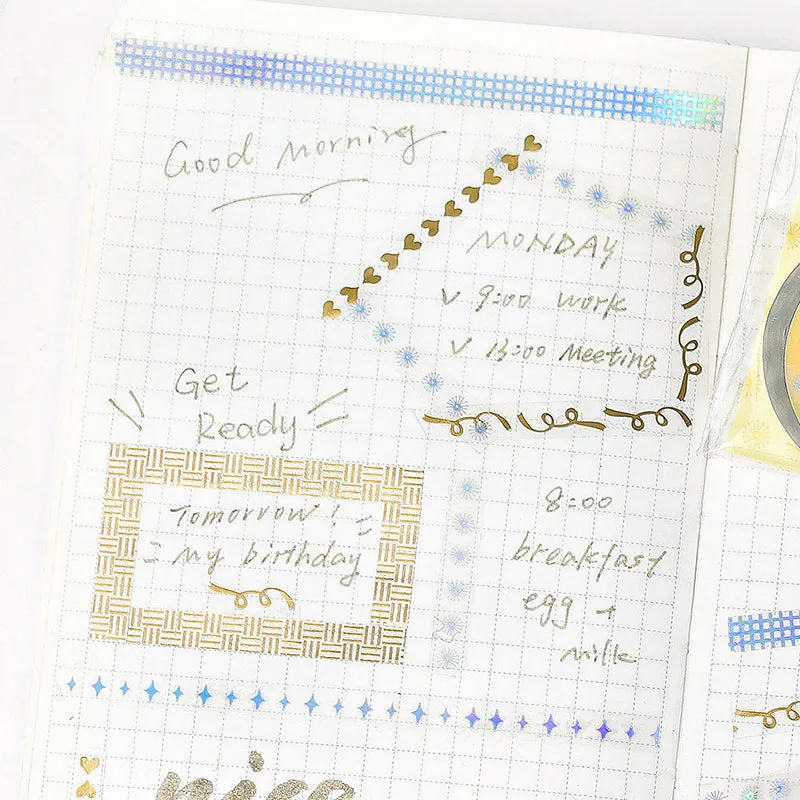 Good Morning
MONDAY
✓ 9:00 work
✓ 13:00 Meeting
Get
Ready
Tomorrow!
My birthday
8:00
breakfast
egg +
milk
nice